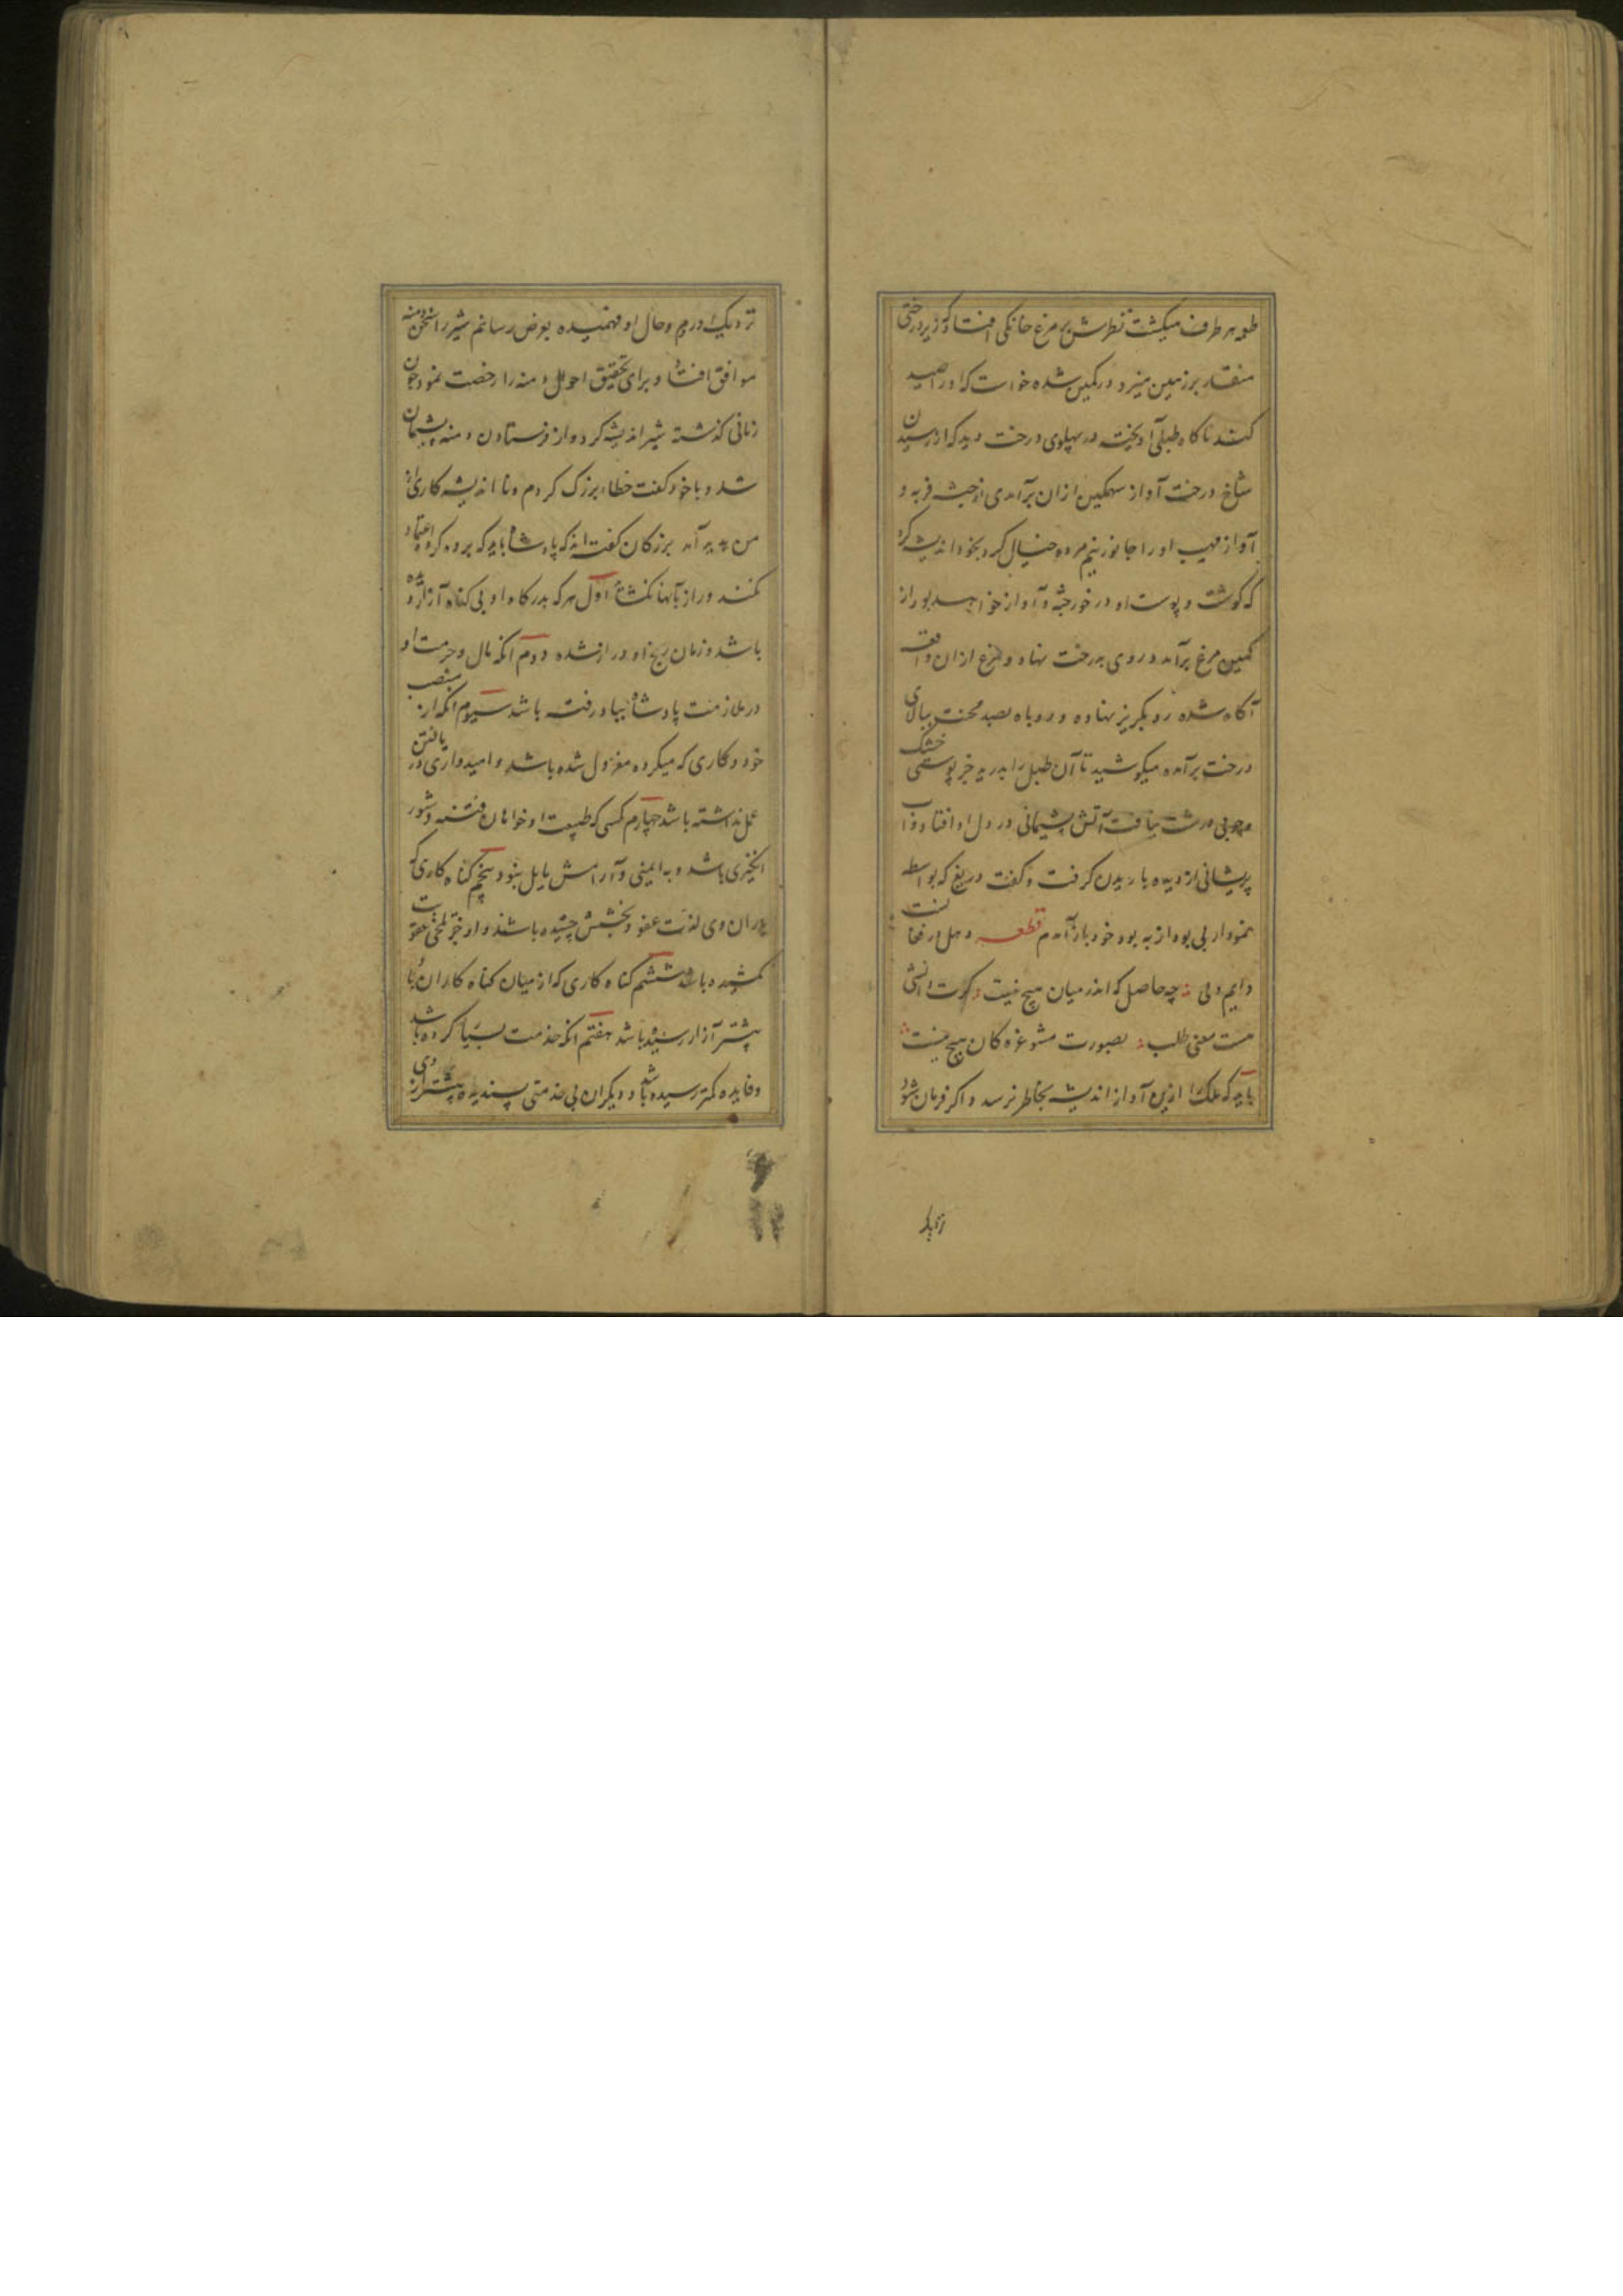 طعمه هر طرف میکشت نظرش بر مرغ خانکی افتاد که زیر درختی
منقار بر زمین میزد در کمین شده خواست که او را صید
کند ناکاه طبلی آویخته در پهلوی درخت دید که از رسیدن
شاخ درخت آواز سهمکین ازان برآمدی از جثه فربه و
آواز مهیب او را جانور نیم مرده خیال کرد بخود اندیشه کرد
که کوشت و پوست او در خور جثه و آواز خواهد بود از
کمین مرغ برآمد و روی بدرخت نهاد و مرغ ازان واقعه
آکاه شده رو بکریز نهاده و روباه بصد محنت ببالای
درخت برآمده میکوشید تا آن طبل را بدرید جز پوستی خشک
و چوبی درشت نیافت آتش پشیمانی در دل او افتاد و آب
پریشانی از دیده باریدن کرفت و کفت دریغ که بواسطه
نمودار بی بود از به بود خود باز آمدم قطعه دهل در فغانست
دایم ولی چه حاصل که اندر میان هیچ نیست کرت دانشی
هست معنی طلب بصورت مشو غره کان هیچ نیست
باید که ملک را ازین آواز اندیشه بخاطر نرسد و اکر فرمان شود
نزدیک او روم و حال او فهمیده بعرض رسانم شیر را سخن دمنه
موافق افتاد و برای تحقیق احوال دمنه را رخصت نمود چون
زمانی کذشته شیر اندیشه کرد و از فرستادن دمنه پشیمان
شد و با خود کفت خطاء بزرک کردم و نا اندیشه کاری از
من پدید آمد بزرکان کفته اند که پادشاه باید که بر ده کروه اعتماد
نکند و راز بآنها نکشاید اول هر که بدرکاه او بی کناه آزار دیده
باشد و زمان رنج او دراز شده دوم آنکه مال و حرمت او
در ملازمت پادشاه بباد رفته باشد سیوم آنکه از منصب
خود و کاری که میکرده معزول شده باشد و امیدواری در یافتن
عمل نداشته باشد چهارم کسی که طبیعت او خواهان فتنه و شور
انکیزی باشد و به ایمنی و آرامش مایل نبود پنجم کناه کاری که
یاران وی لذت عفو و بخشش چشیده باشند و او جز تلخی عقوبت
نچشیده باشد ششم کناه کاری که از میان کناه کاران او را
بیشتر آزار رسیده باشد هفتم آنکه خدمت بسیار کرده باشد
و فایده کمتر رسیده باشد و دیکران بی خدمتی پسندیده بیشتر از وی
نزدیک